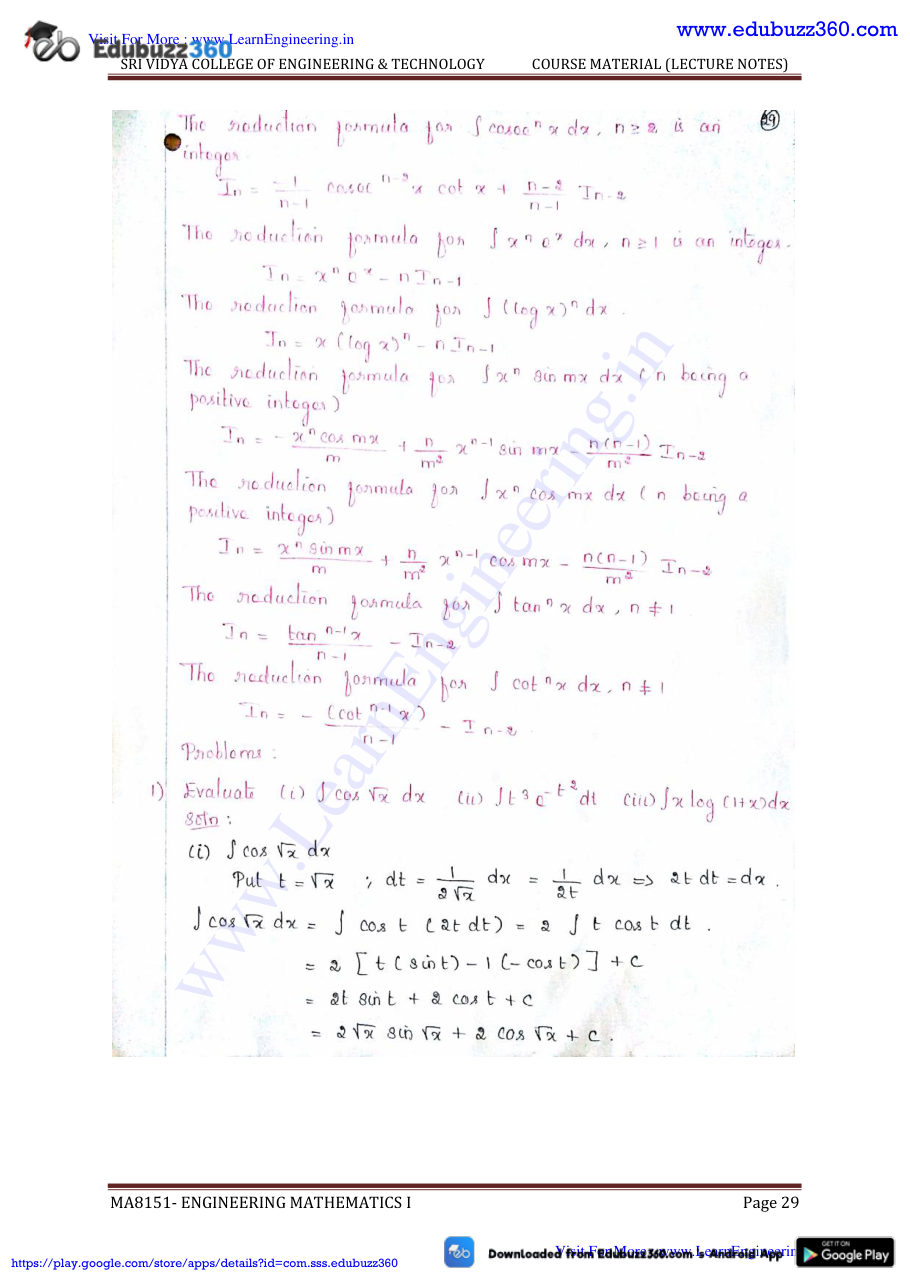 www.edubuzz360.com
Visit For More : www.LearnEngineering.in
Edubuzz360
SRI VIDYA COLLEGE OF ENGINEERING & TECHNOLOGY COURSE MATERIAL (LECTURE NOTES)
29
The reduction formula for ∫ cosec^n x dx, n ≥ 2 is an
integer.
In = -1/(n-1) cosec^(n-2) x cot x + (n-2)/(n-1) In-2
The reduction formula for ∫ x^n e^x dx, n ≥ 1 is an integer.
In = x^n e^x - n In-1
The reduction formula for ∫ (log x)^n dx.
In = x (log x)^n - n In-1
The reduction formula for ∫ x^n sin mx dx (n being a
positive integer)
In = - x^n cos mx/m + n/m^2 x^(n-1) sin mx - n(n-1)/m^2 In-2
The reduction formula for ∫ x^n cos mx dx (n being a
positive integer)
In = x^n sin mx/m + n/m^2 x^(n-1) cos mx - n(n-1)/m^2 In-2
The reduction formula for ∫ tan^n x dx, n ≠ 1
In = tan^(n-1) x/(n-1) - In-2
The reduction formula for ∫ cot^n x dx, n ≠ 1
In = - (cot^(n-1) x)/(n-1) - In-2.
Problems :
1) Evaluate (i) ∫ cos √x dx (ii) ∫ t^3 e^(-t^2) dt (iii) ∫ x log (1+x) dx
Soln :
(i) ∫ cos √x dx
Put t = √x ; dt = 1/(2√x) dx = 1/(2t) dx => 2t dt = dx.
∫ cos √x dx = ∫ cos t (2t dt) = 2 ∫ t cos t dt.
= 2 [t (sin t) - 1 (- cos t)] + c
= 2t sin t + 2 cos t + c
= 2√x sin √x + 2 cos √x + c.
www.LearnEngineering.in
MA8151- ENGINEERING MATHEMATICS I Page 29
Downloaded from Edubuzz360.com's Android App
Visit For More : www.LearnEngineerin
GET IT ON
Google Play
https://play.google.com/store/apps/details?id=com.sss.edubuzz360